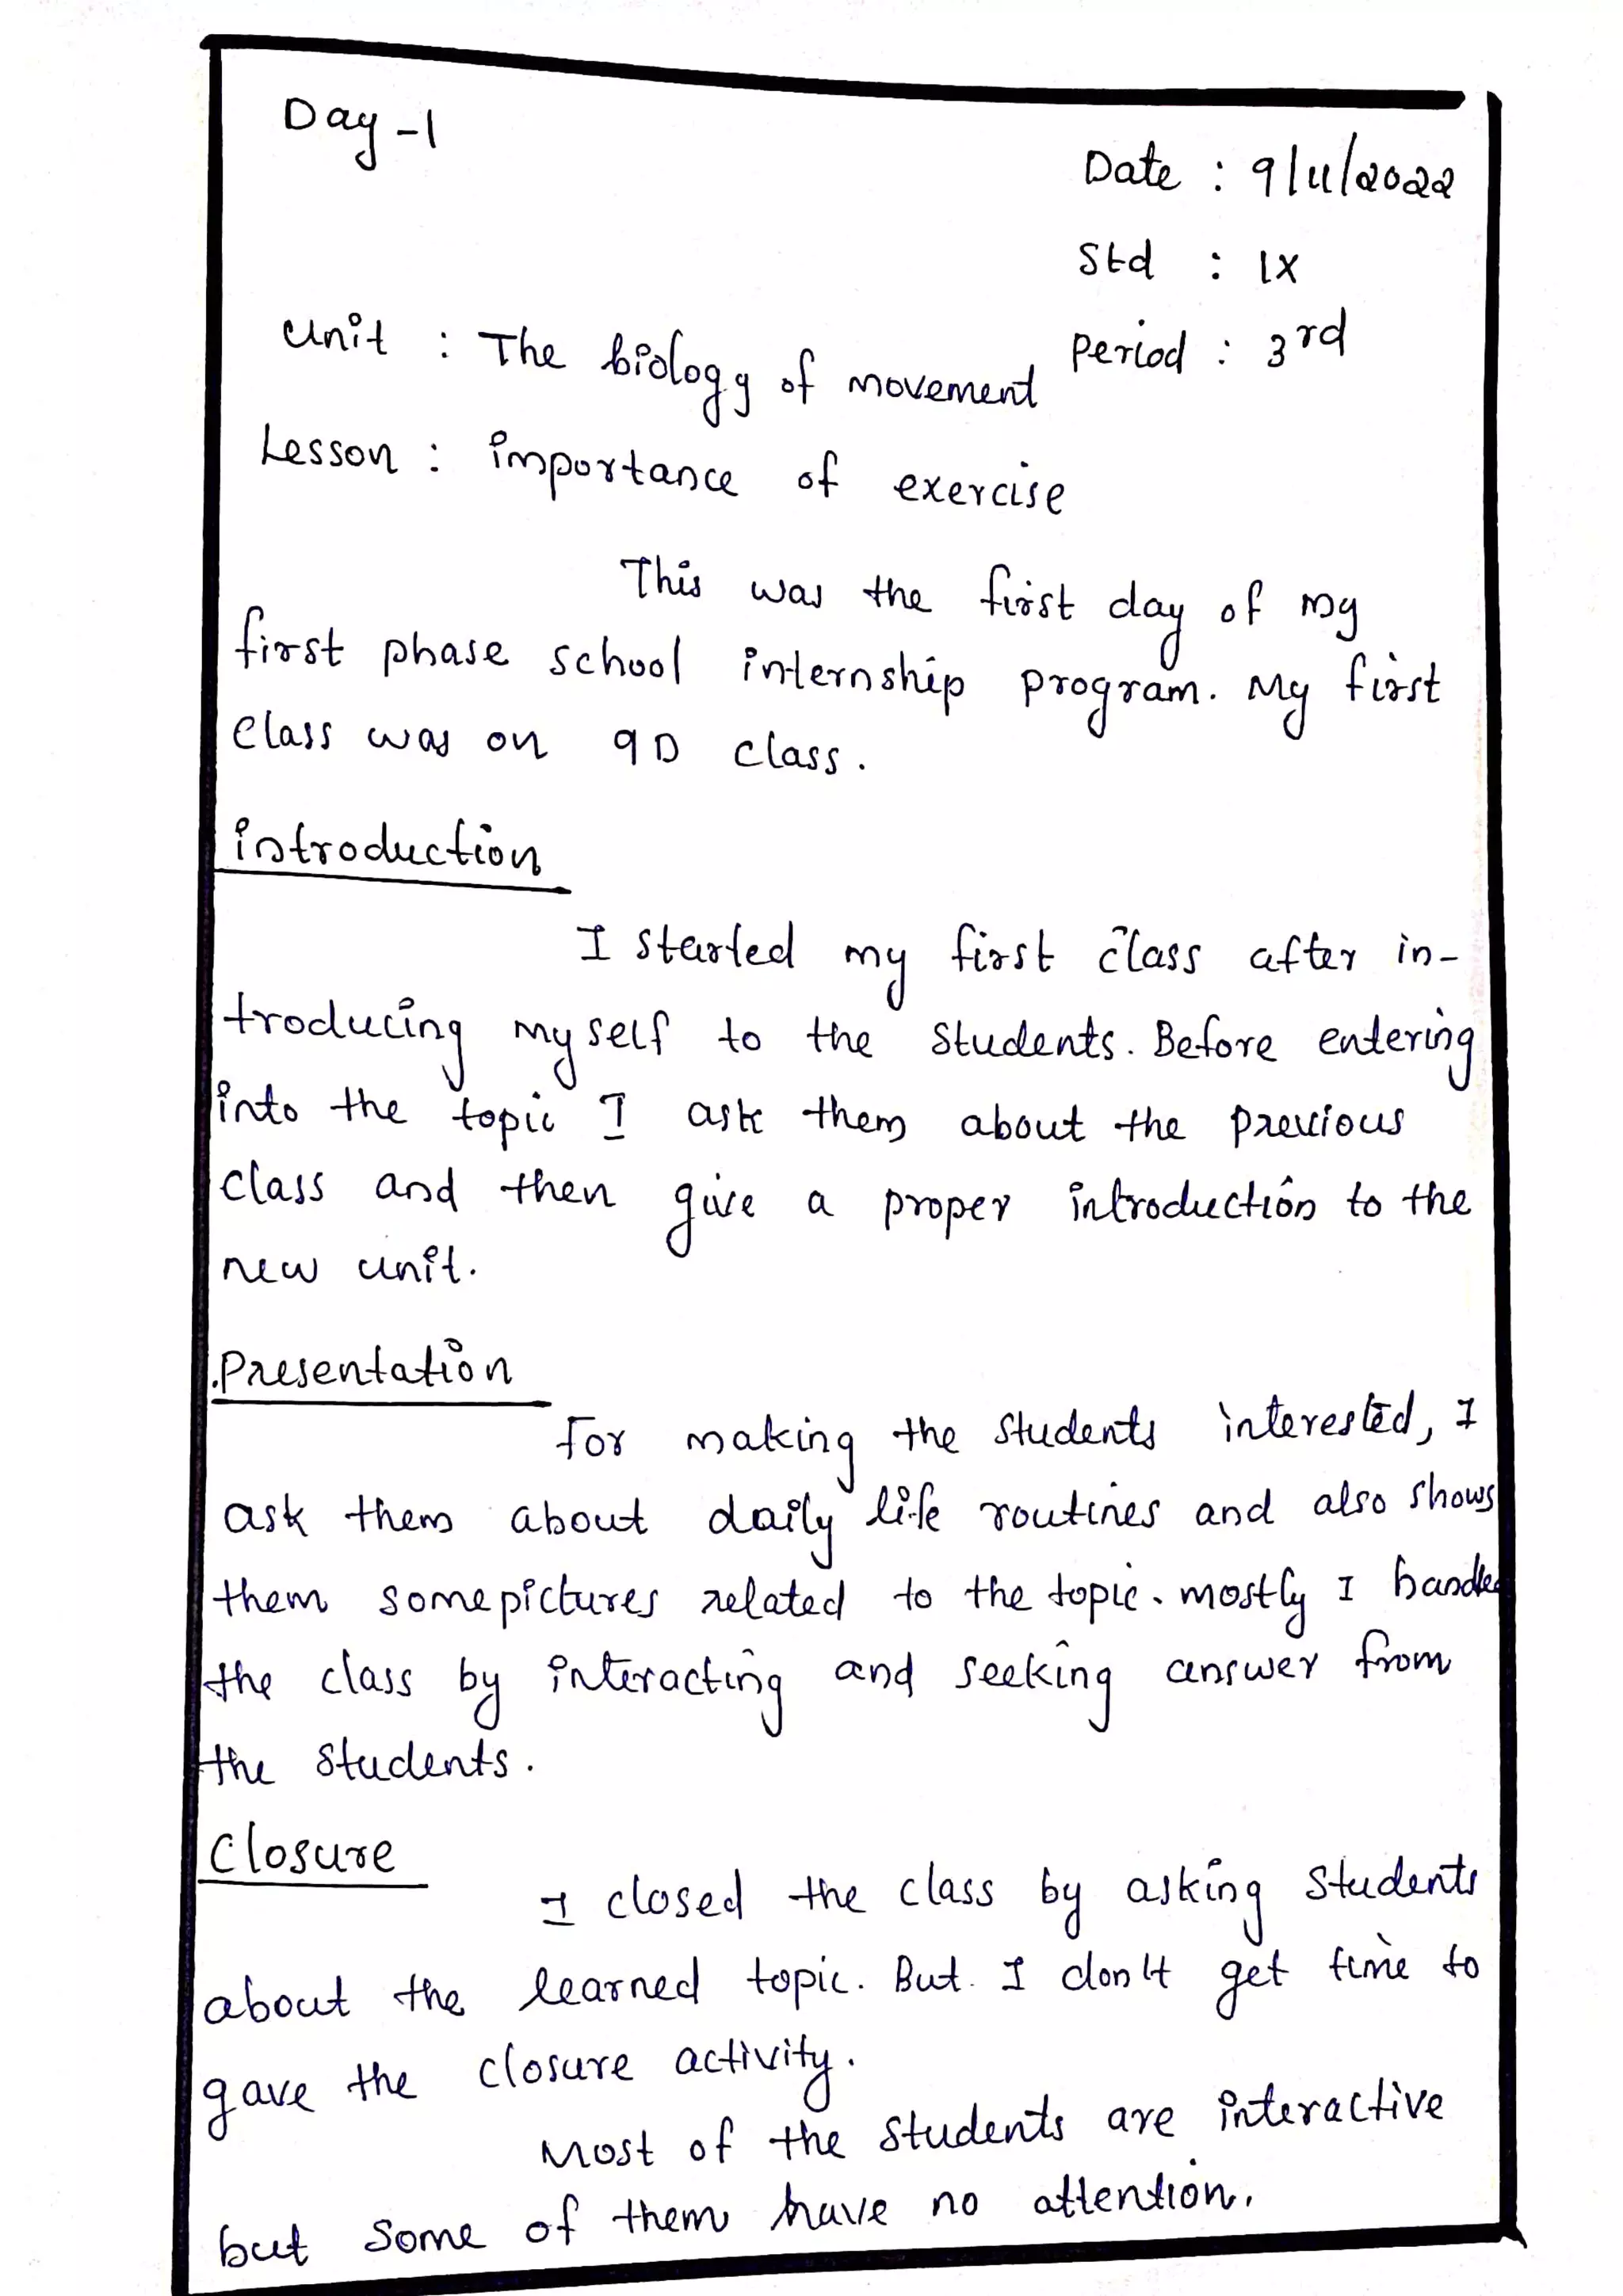 Day-1
Date : 9/11/2022
Std : IX
Unit : The biology of movement
Period : 3rd
Lesson : importance of exercise
This was the first day of my
first phase school internship program. My first
class was on 9D class.
introduction
I started my first class after in-
troducing myself to the students. Before entering
into the topic I ask them about the previous
class and then give a proper introduction to the
new unit.
Presentation
For making the students interested, I
ask them about daily life routines and also shows
them some pictures related to the topic. mostly I handle
the class by interacting and seeking answer from
the students.
Closure
I closed the class by asking students
about the learned topic. But I don't get time to
gave the closure activity.
Most of the students are interactive
but some of them have no attention.